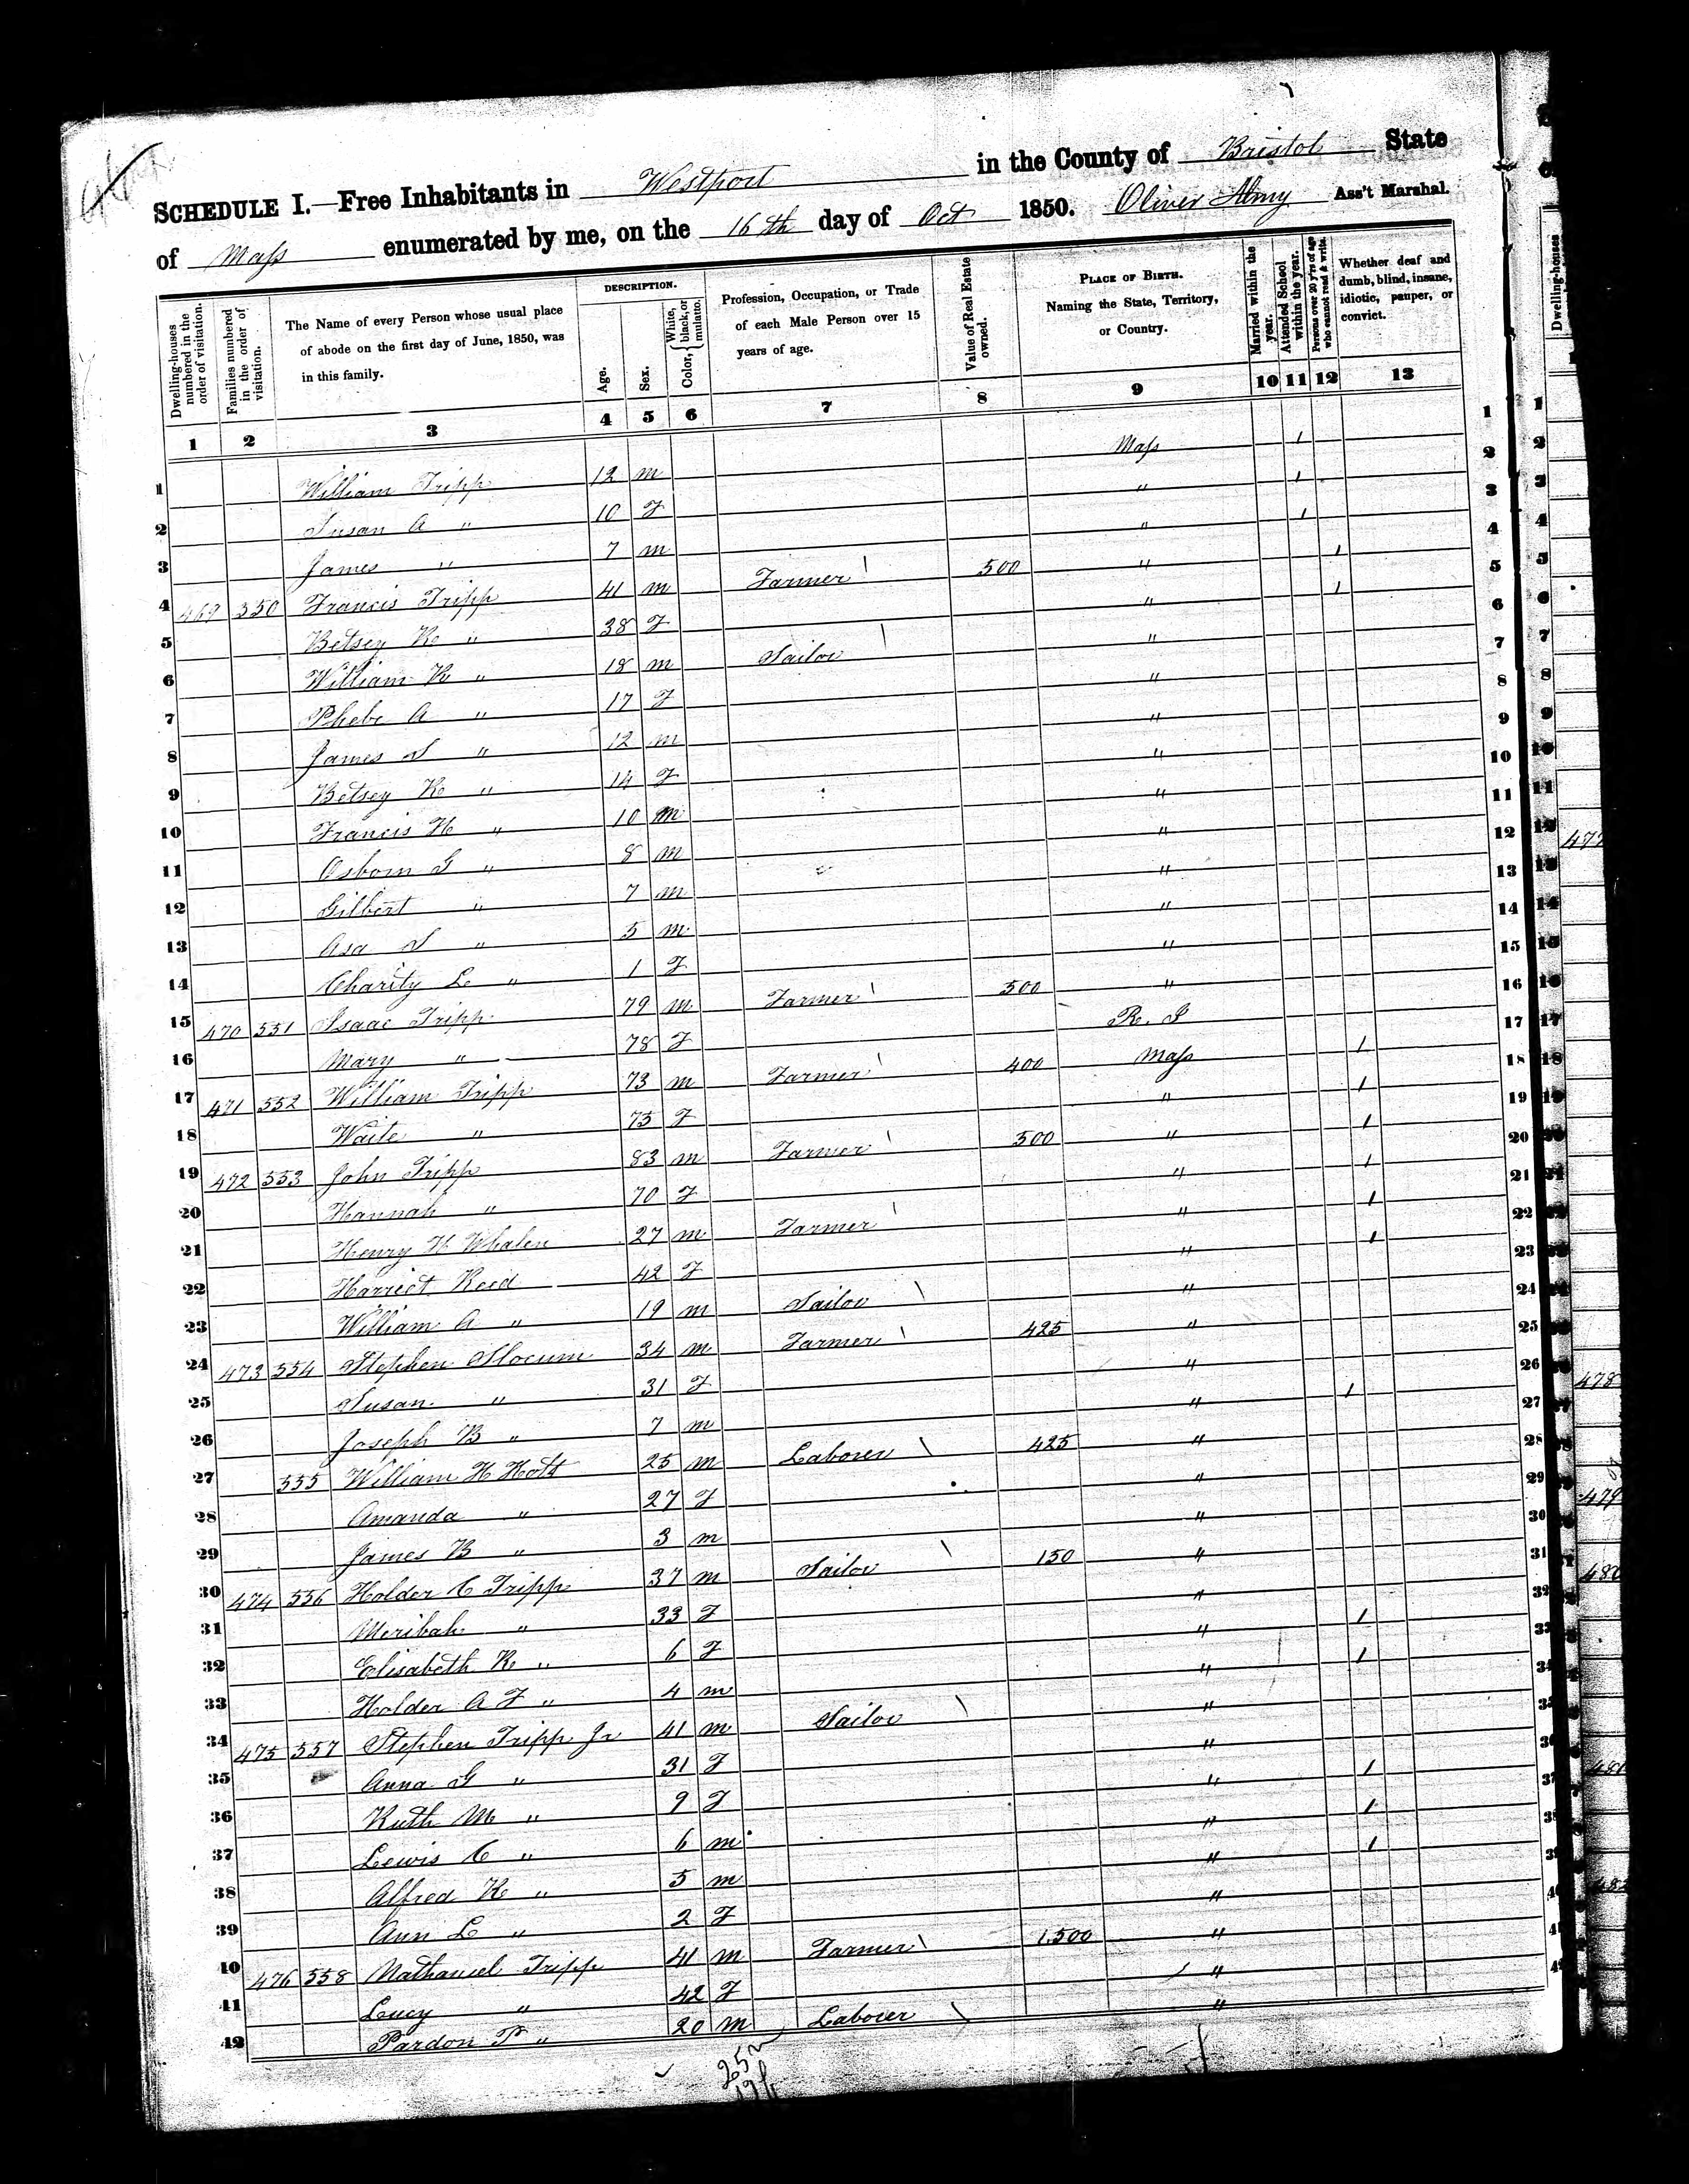 SCHEDULE I.—Free Inhabitants in Westport in the County of Bristol State
of Mass enumerated by me, on the 16th day of Oct 1850. Oliver Almy Ass't Marshal.
Dwelling-houses numbered in the order of visitation.
Families numbered in the order of visitation.
The Name of every Person whose usual place of abode on the first day of June, 1850, was in this family.
DESCRIPTION.
Age.
Sex.
Color, { White, black, or mulatto.
Profession, Occupation, or Trade of each Male Person over 15 years of age.
Value of Real Estate owned.
PLACE OF BIRTH. Naming the State, Territory, or Country.
Married within the year.
Attended School within the year.
Persons over 20 y'rs of age who cannot read & write.
Whether deaf and dumb, blind, insane, idiotic, pauper, or convict.
1 2 3 4 5 6 7 8 9 10 11 12 13
1 William Tripp 12 m Mass 1 1
2 Susan A " 10 F " 1 2
3 James " 7 m " 1 3
4 469 550 Francis Tripp 41 m Farmer 500 " 1 4
5 Betsey K " 38 F " 1 5
6 William K " 18 m Sailor " 6
7 Phebe A " 17 F " 7
8 James S " 12 m " 8
9 Betsey K " 14 F " 9
10 Francis H " 10 m " 10
11 Osborn G " 8 m " 11
12 Gilbert " 7 m " 12
13 Asa S " 5 m " 13
14 Charity L " 1 F " 14
15 470 551 Isaac Tripp 79 m Farmer 500 " 15
16 Mary " 78 F R. I 16
17 471 552 William Tripp 73 m Farmer 400 Mass 1 17
18 Waite " 75 F " 1 18
19 472 553 John Tripp 83 m Farmer 500 " 1 19
20 Hannah " 70 F " 1 20
21 Henry H Whalen 27 m Farmer " 1 21
22 Harriet Reed 42 F " 1 22
23 William A " 19 m Sailor " 23
24 473 554 Stephen Slocum 34 m Farmer 425 " 24
25 Susan " 31 F " 25
26 Joseph B " 7 m " 1 26
27 555 William H Hott 25 m Laborer 425 " 27
28 Amanda " 27 F " 28
29 James B " 3 m " 29
30 474 556 Holder C Tripp 37 m Sailor 150 " 30
31 Meribah " 33 F " 31
32 Elisabeth K " 6 F " 1 32
33 Holder A F " 4 m " 1 33
34 475 557 Stephen Tripp Jr 41 m Sailor " 34
35 Anna G " 31 F " 35
36 Ruth M " 9 F " 1 36
37 Lewis C " 6 m " 1 37
38 Alfred K " 5 m " 1 38
39 Ann L " 2 F " 39
40 476 558 Nathaniel Tripp 41 m Farmer 1.500 " 40
41 Lucy " 42 F " 41
42 Pardon P " 20 m Laborer " 42